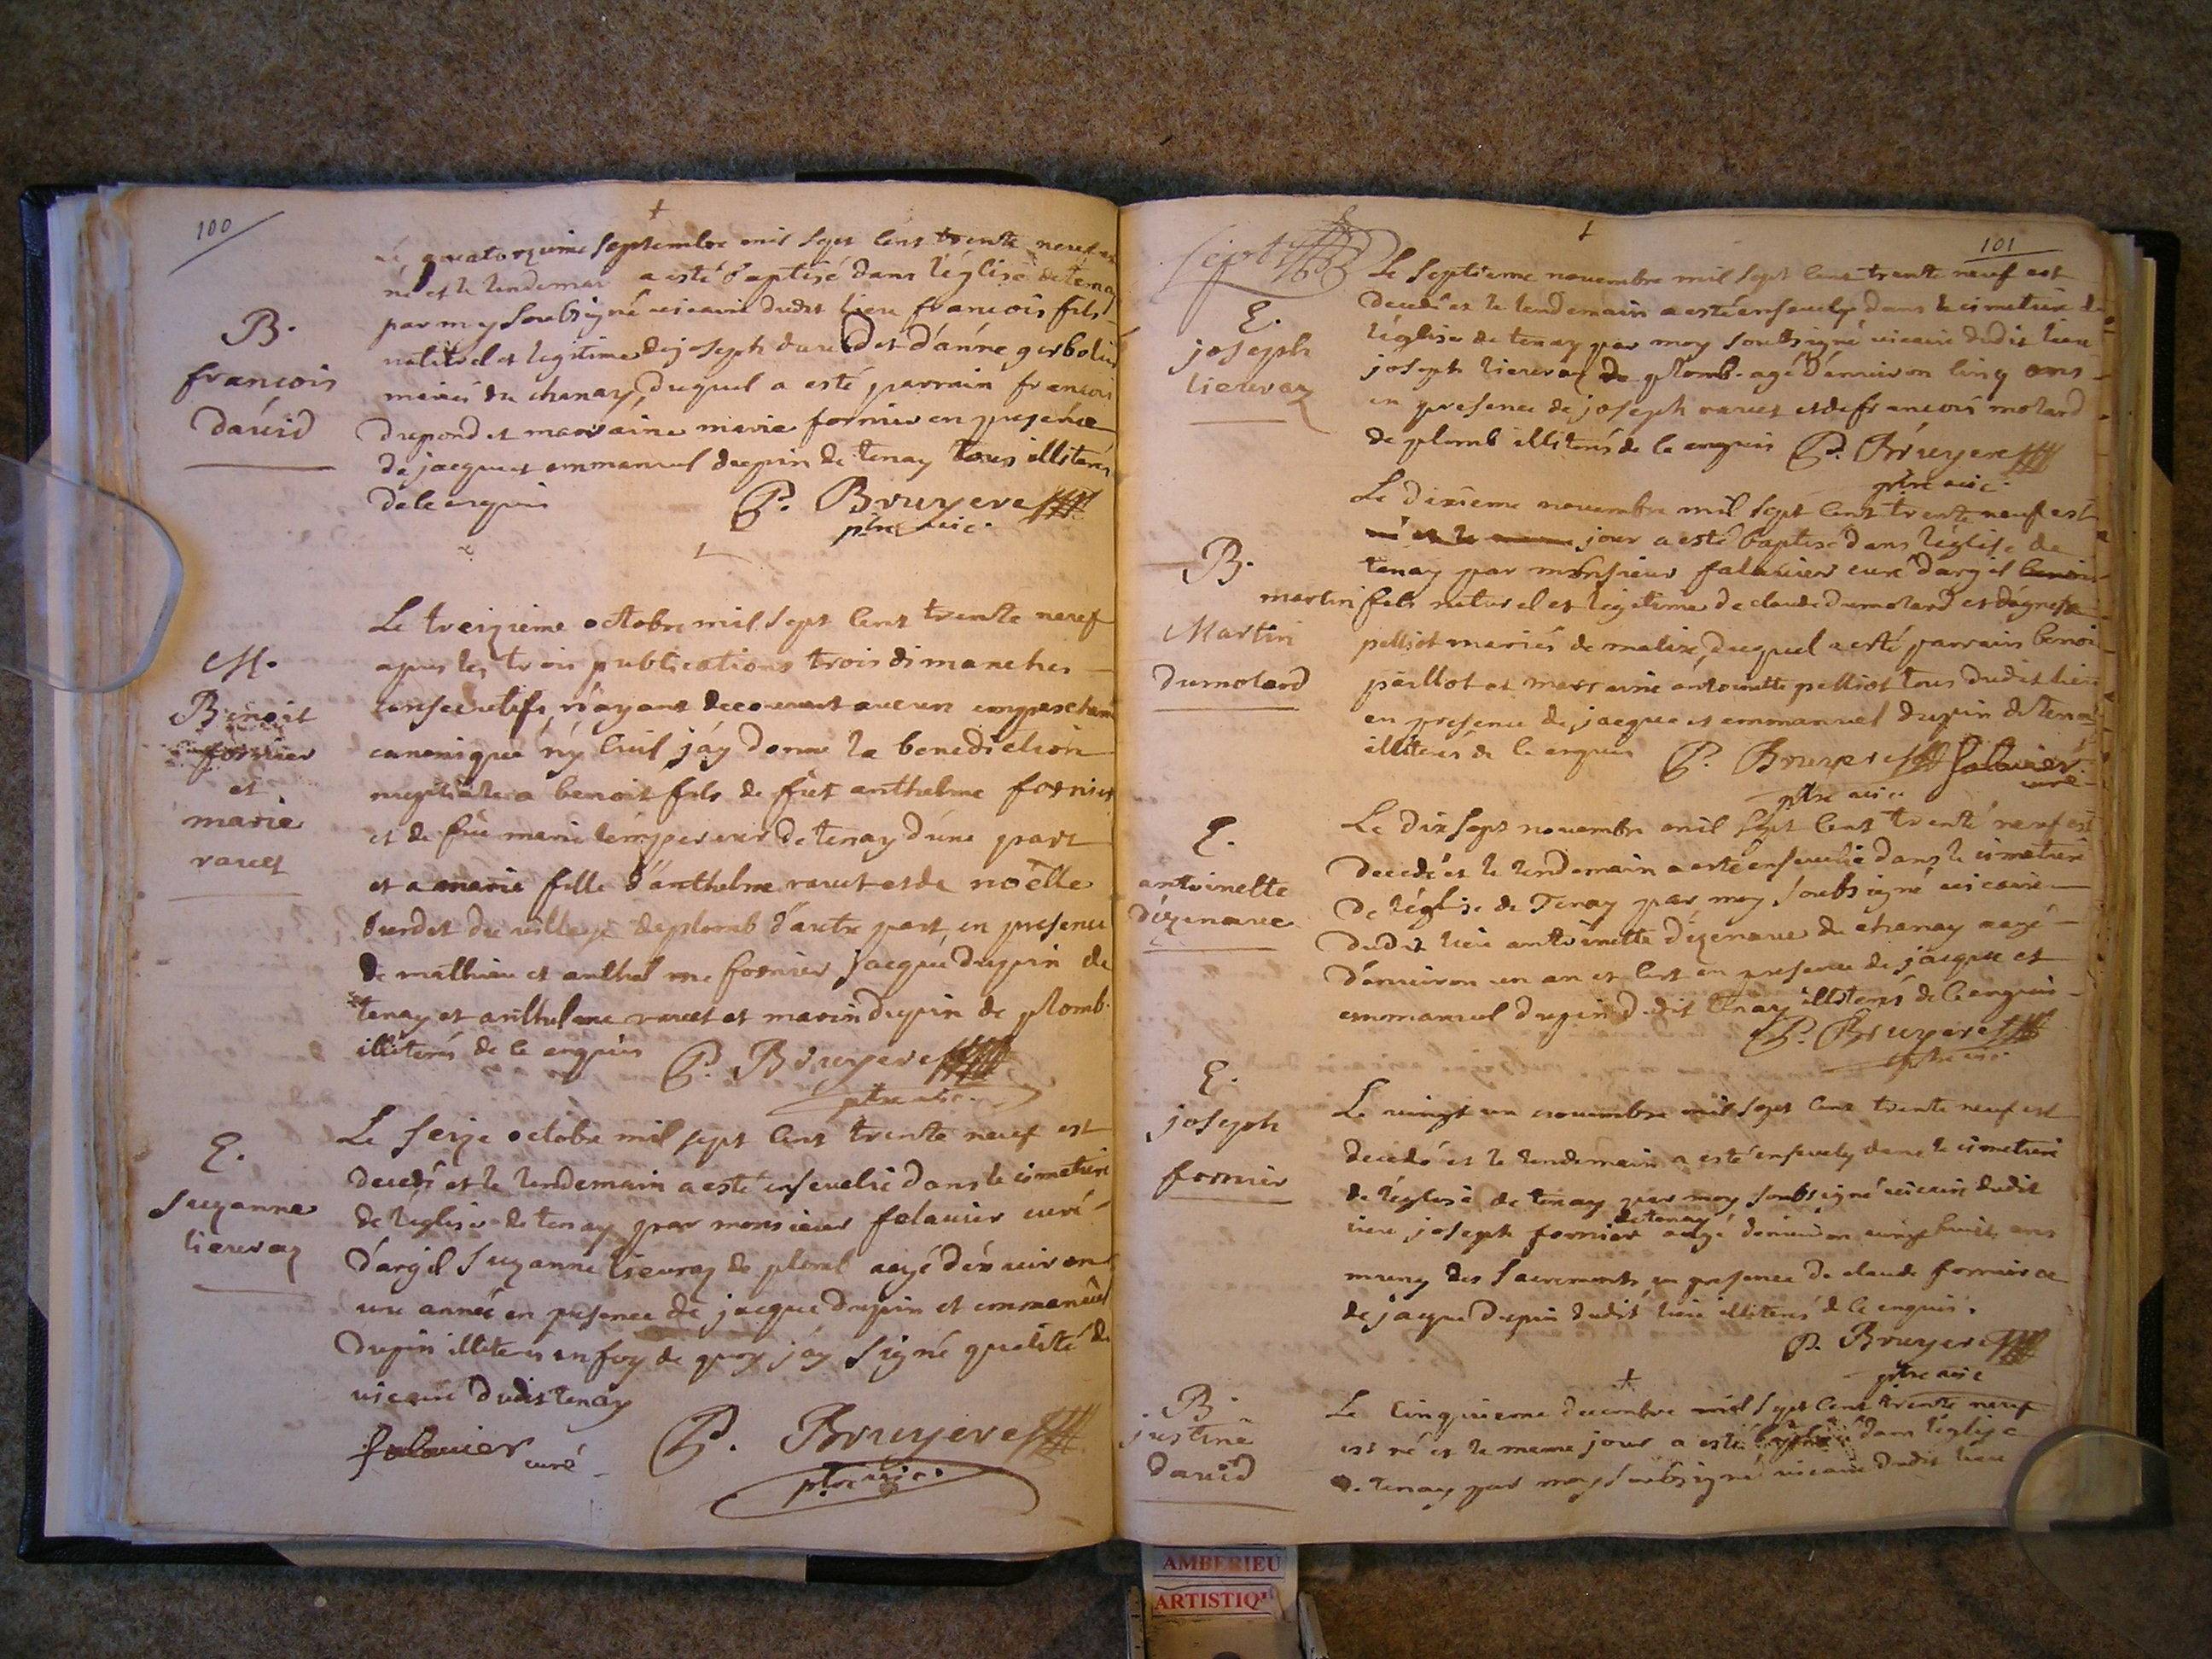 100
Le quatorzieme septembre mil sept cent trente neuf est
né et le lendemai a esté baptisé dans l'église de tenay
par moy soubsigné vicaire dudit lieu francois fils
naturel et legitime de joseph david et d'anne gerbolier
mariés du chanay, duquel a esté parrain francois
dupond et marraine marie fornier en presence
de jacque et emmanuel dupin de tenay tous illiterés
de ce enquis P. Bruyere
ptre vic.
B.
francois
david
Le treizieme octobre mil sept cent trente neuf
apres les trois publications trois dimanches
consecutifs n'ayant decouvert aucun empeschem
canonique n'y civil j'ay donne la benediction
nuptiale a benoit fils de fut anthelme fornier
et de fue marie tempereur de tenay d'une part
et a marie fille d'anthelme ravet et de noëlle
burdet du village de plomb d'autre part, en presence
de mathieu et anthelme fornier jacque dupin de
tenay et anthelme ravet et marin dupin de plomb
illiterés de ce enquis P. Bruyere
ptre vic.
M.
Benoit
fornier
et
marie
ravet
Le seize octobre mil sept cent trente neuf est
decedé et le lendemain a esté ensevelie dans le cimetiere
de l'eglise de tenay par monsieur falavier curé
d'argil Suzanne lieuraz de plomb agé d'environ
une année en presence de jacque dupin et emmanuel
dupin illiteres en foy de quoy j'ay signé qualité de
vicaire dudit tenay
falavier curé P. Bruyere
ptre vic.
E.
Suzanne
lieuraz
101
Le septieme novembre mil sept cent trente neuf est
decedé et le lendemain a esté ensevely dans le cimetiere de
l'église de tenay par moy soubsigné vicaire dudit lieu
joseph lieuraz de plomb agé d'environ cinq ans
en presence de joseph ravet et de francois molard
de plomb illiterés de ce enquis P. Bruyere
ptre vic.
E.
joseph
lieuraz
Le dixieme novembre mil sept cent trente neuf est
né et le meme jour a esté baptisé dans l'église de
tenay par monsieur falavier curé d'argil benoit
martin fils naturel et legitime de claude dumolard et d'agnesse
pelliot mariés de malix, duquel a esté parrain benoi
paillot et marraine antoinette pelliot tous dudit lieu
en presence de jacque et emmanuel dupin de tenay
illiterés de ce enquis P. Bruyere falavier
ptre vic. curé
B.
Martin
dumolard
Le dix sept novembre mil sept cent trente neuf est
decedé et le lendemain a esté ensevelie dans le cimetiere
de l'église de Tenay par moy soubsigné vicaire
dudit lieu antoinette dézenave du chanay aagé
d'environ un an et en presence de jacque et
emmanuel dupin dudit tenay illiterés de ce enquis
P. Bruyere
ptre vic.
E.
antoinette
dézenave
Le vingt un novembre mil sept cent trente neuf est
decedé et le lendemain a esté ensevely dans le cimetiere
de l'église de tenay par moy soubsigné vicaire dudit
lieu joseph fornier de tenay aagé d'environ vingt huit ans
muny des sacrements en presence de claude fornier et
de jacque dupin dudit lieu illiterés de ce enquis.
P. Bruyere
ptre vic
E.
joseph
fornier
Le cinquieme decembre mil sept cent trente neuf
est né et le meme jour a esté baptisé dans l'église
de tenay par moy soubsigné vicaire dudit lieu
B.
justine
david
AMBERIEU
ARTISTIQU